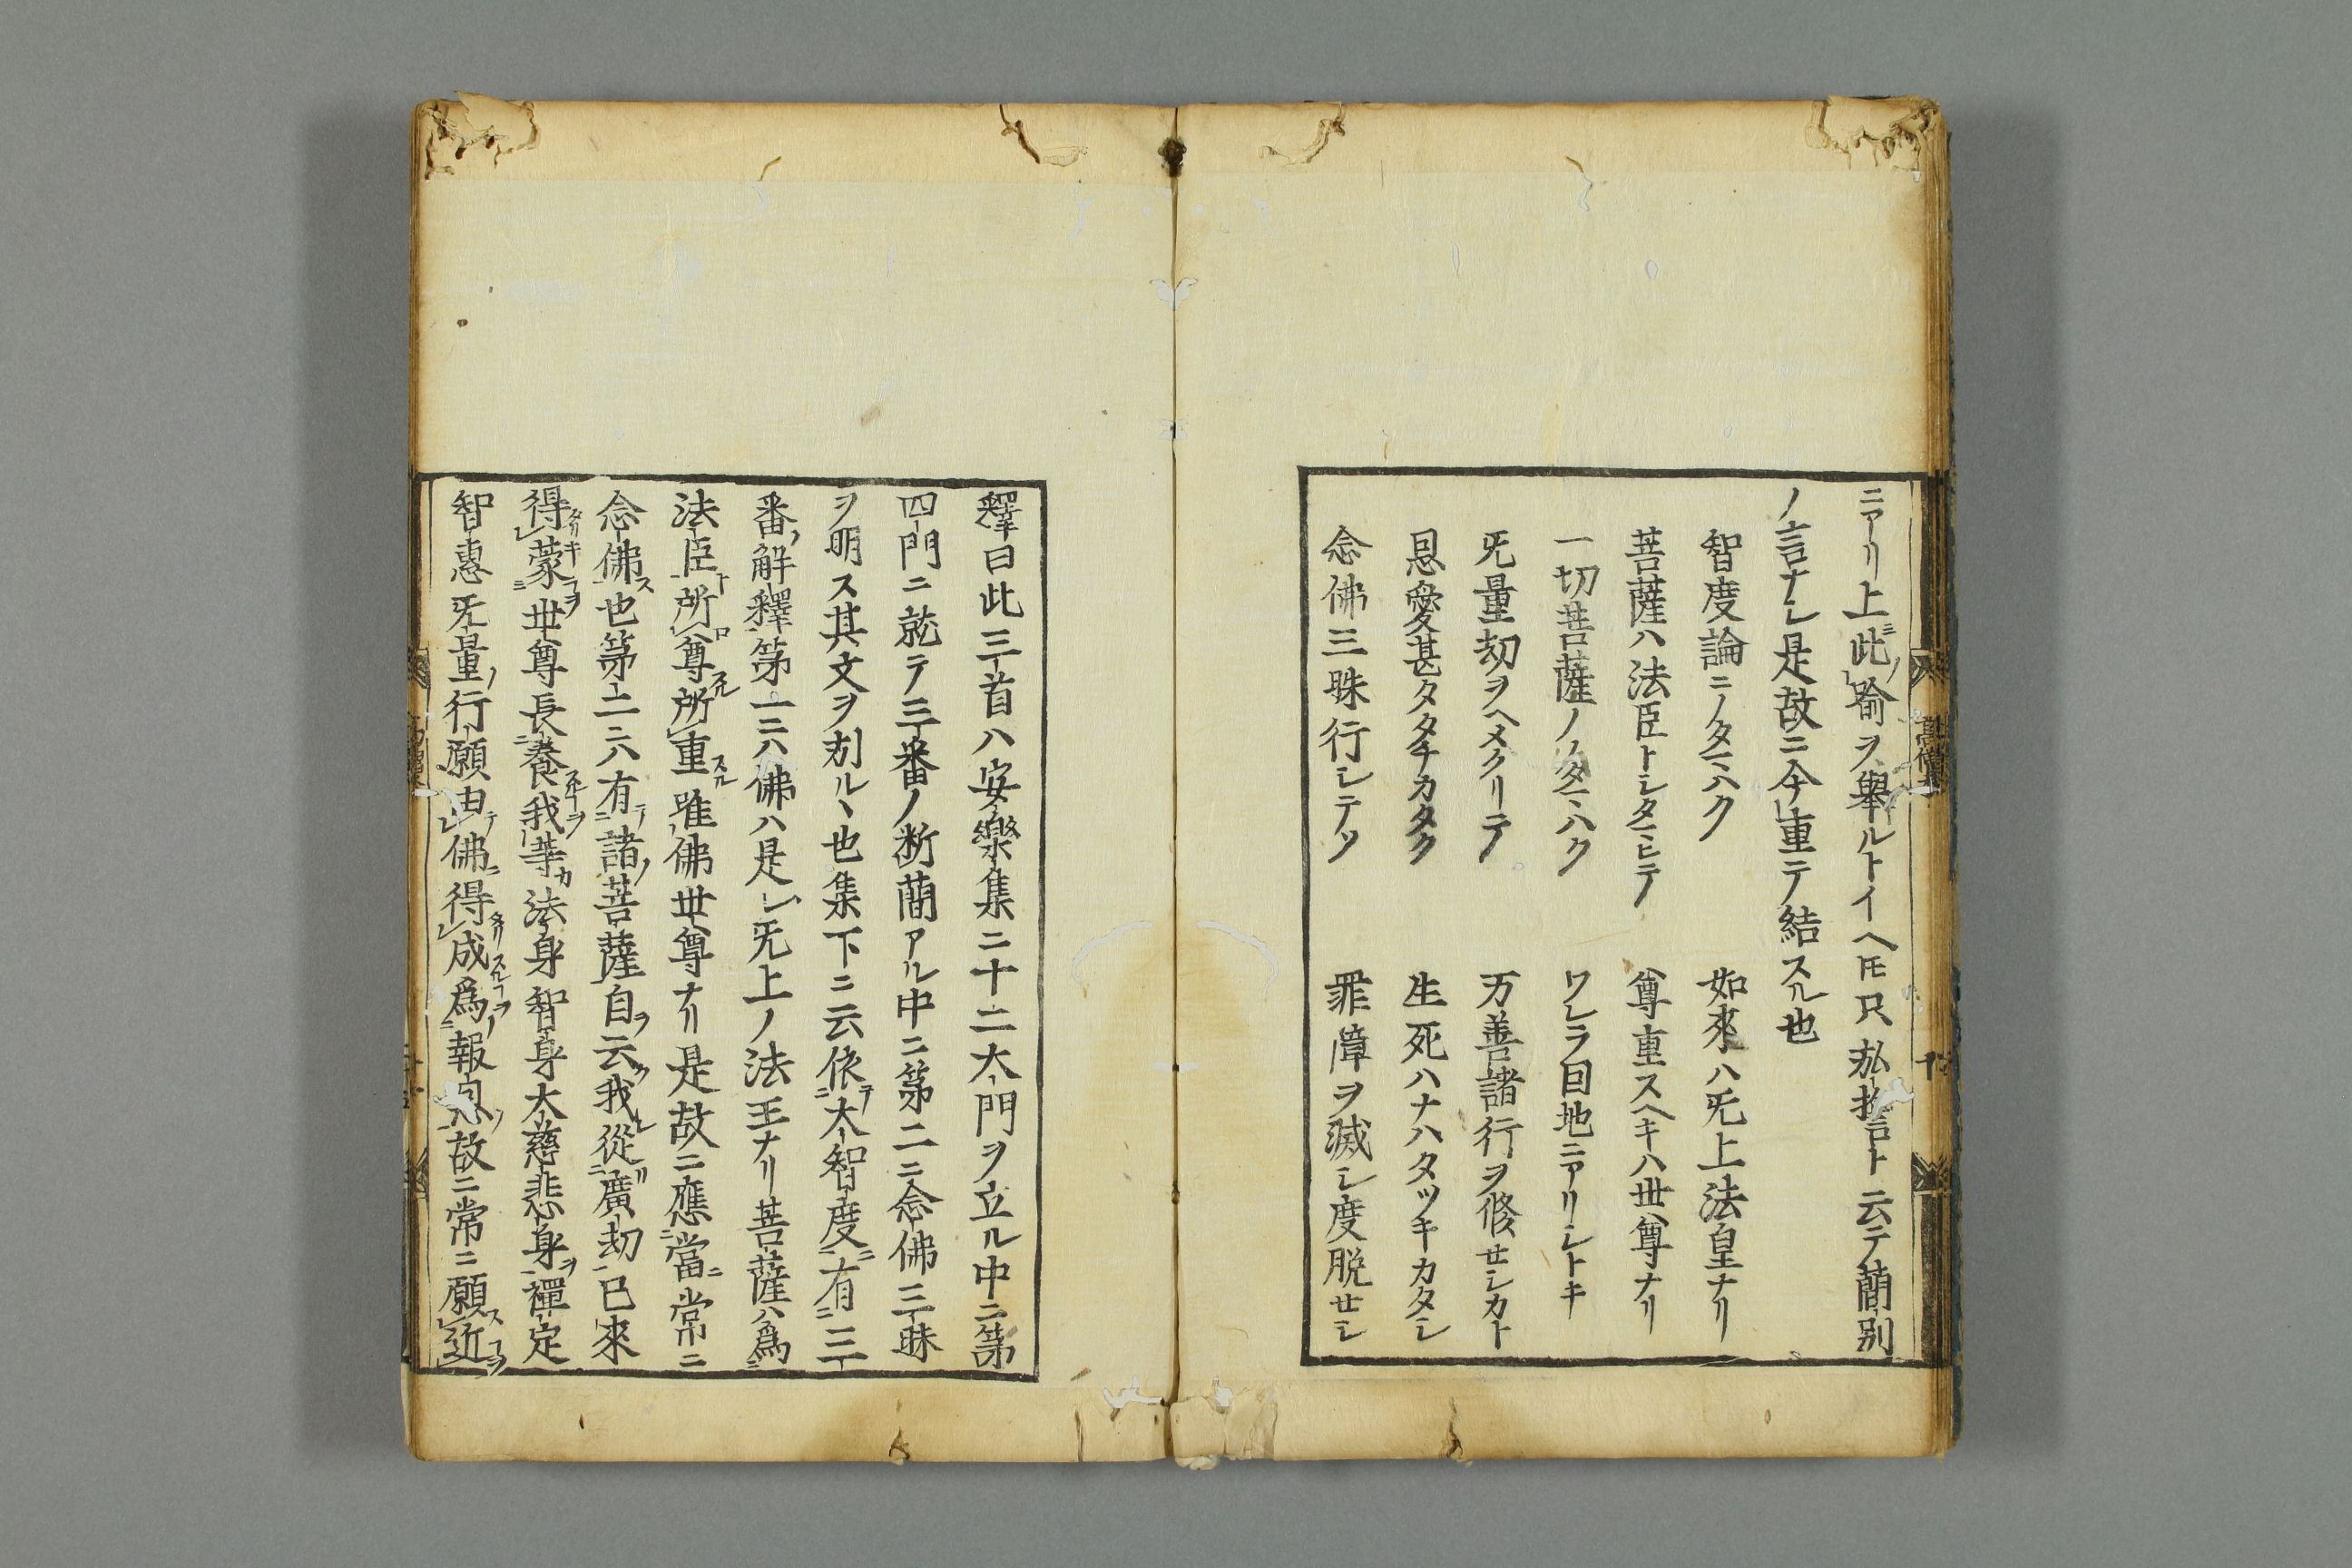 ニアリ上ニ此ノ喩ヲ舉ルトイヘ𪜈只勸言ト云テ蕳別
ノ言ナシ是故ニ今重テ結スル也
智度論ニノタマハク　如來ハ旡上法皇ナリ
菩薩ハ法臣トシタマヒテ　尊重スヘキハ世尊ナリ
一切菩薩ノノタマハク　ワレラ因地ニアリシトキ
旡量劫ヲヘメクリテ　万善諸行ヲ修セシカト
恩愛甚タタチカタク　生死ハナハタツキカタシ
念佛三昧行シテソ　罪障ヲ滅シ度脱セシ
釋曰此三首ハ安樂集ニ十二大門ヲ立ル中ニ第
四門ニ就テ三番ノ断蕳アル中ニ第二ニ念佛三昧
ヲ明ス其文ヲ列ルヽ也集下ニ云依テ大智度ニ有三
番ノ解釋第一ニハ佛ハ是レ旡上ノ法王ナリ菩薩ハ爲
法臣ト所尊スル所重スル唯佛世尊ナリ是故ニ應當ニ常ニ
念佛ス也第二ニハ有テ諸ノ菩薩自ラ云ク我レ從リ廣劫已來
得タリキ蒙コヲ世尊長養スルヿヲ我等カ法身智身大慈悲身ヲ禪定
智惠旡量ノ行願由テ佛ニ得タリ成スルヿヲ爲ノ報恩ノ故ニ常ニ願ス近コヲ